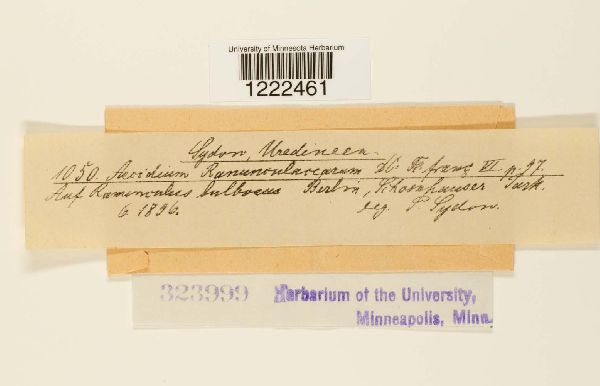 University of Minnesota Herbarium
1222461
Sydow, Uredineen.
1050. Aecidium Ranunculacearum DC. Fl. franç VI p. 97.
Auf Ranunculus bulbosus Berlin, Schoenhauser Park.
6. 1896. leg. P. Sydow.
323999 Herbarium of the University,
Minneapolis, Minn.